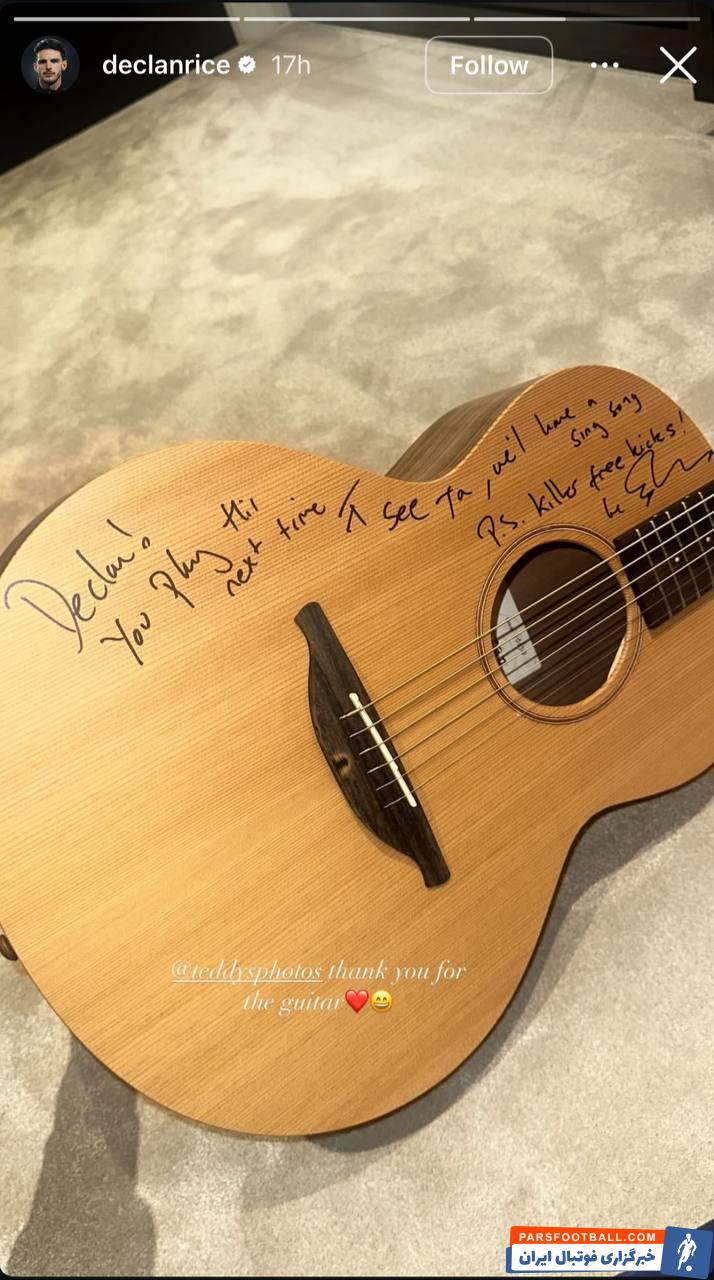 declanrice 17h Follow
Declan!
You play this
next time
I see ya, we'll have a
sing song
P.S. killer free kicks!
@teddysphotos thank you for
the guitar❤️😄
PARSFOOTBALL.COM
خبرگزاری فوتبال ایران